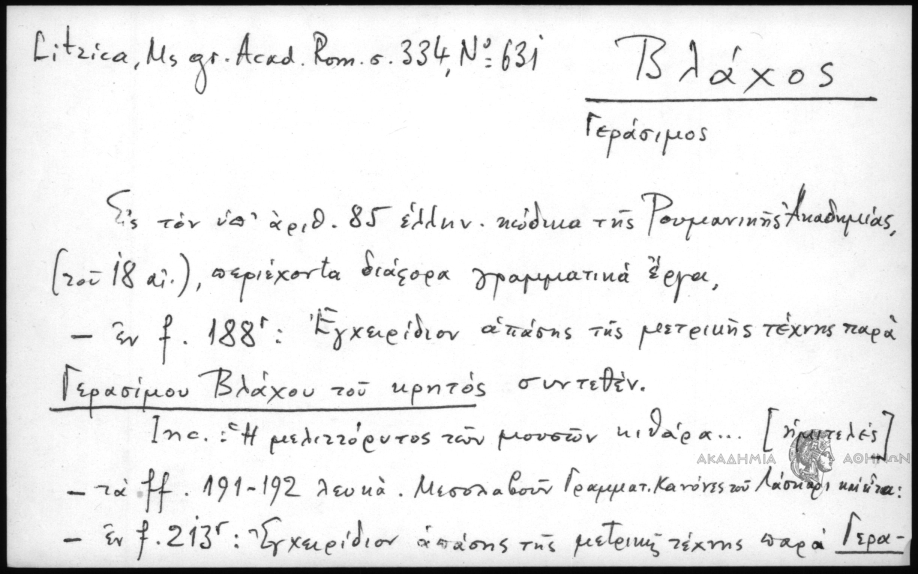 Litzica, Ms gr. Acad. Rom. σ. 334, Nº 631
Βλάχος
Γεράσιμος
Εἰς τὸν ὑπ' ἀριθ. 85 ἑλλην. κώδικα τῆς Ρουμανικῆς Ἀκαδημίας,
(τοῦ 18 αἰ.), περιέχοντα διάφορα γραμματικὰ ἔργα,
– ἐν f. 188ʳ: Ἐγχειρίδιον ἁπάσης τῆς μετρικῆς τέχνης παρὰ
Γερασίμου Βλάχου τοῦ κρητός συντεθέν.
Inc.: Ἡ μελιττόρυτος τῶν μουσῶν κιθάρα... [ἡμιτελές]
ΑΚΑΔΗΜΙΑ ΑΘΗΝΩΝ
– τὰ ff. 191-192 λευκὰ. Μεσολαβοῦν Γραμματ. Κανόνες τοῦ Λάσκαρι
– ἐν f. 213ʳ: Ἐγχειρίδιον ἁπάσης τῆς μετρικῆς τέχνης παρὰ Γερα-